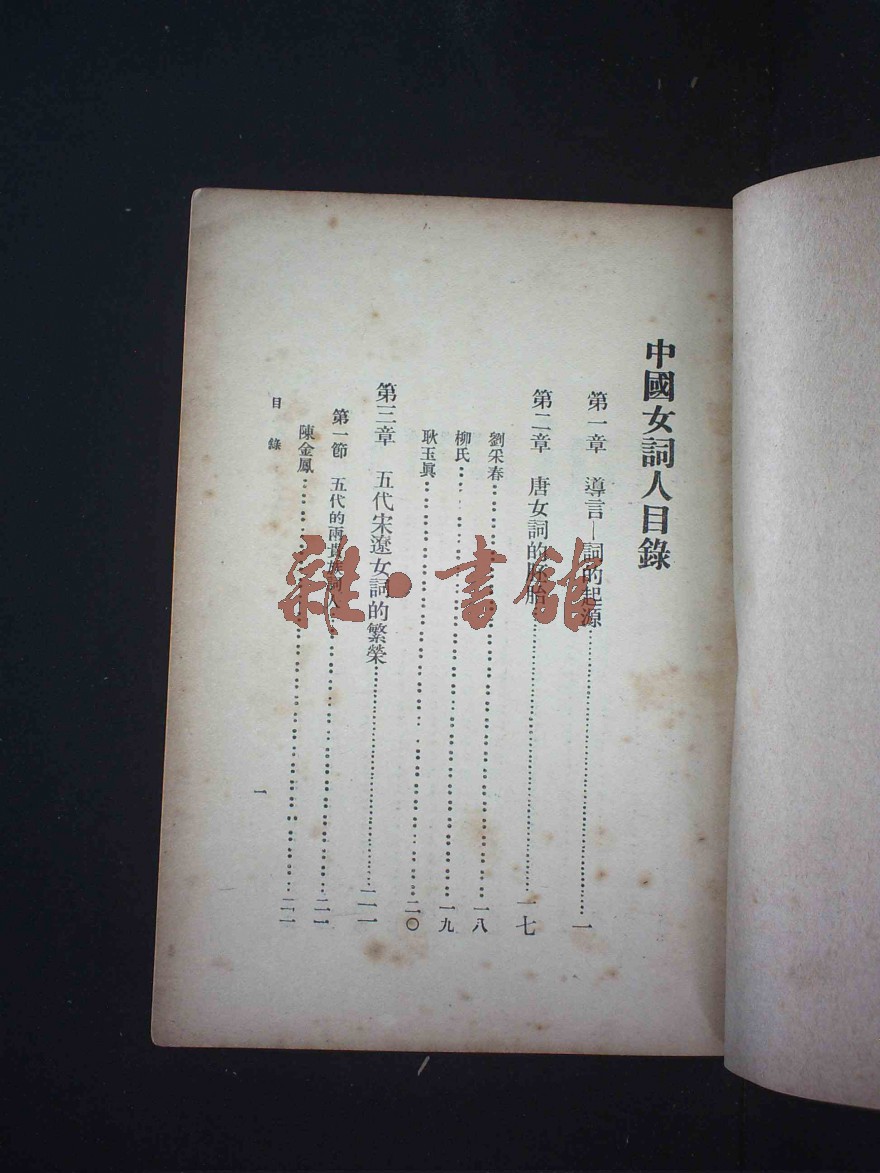 中國女詞人目錄
第一章 導言—詞的起源……一
第二章 唐女詞的胚胎……一七
劉采春……一八
柳氏……一九
耿玉眞……二〇
第三章 五代宋遼女詞的繁榮……二一
第一節 五代的兩貴族詞人……二一
陳金鳳……二一
目錄
一
雜·書館